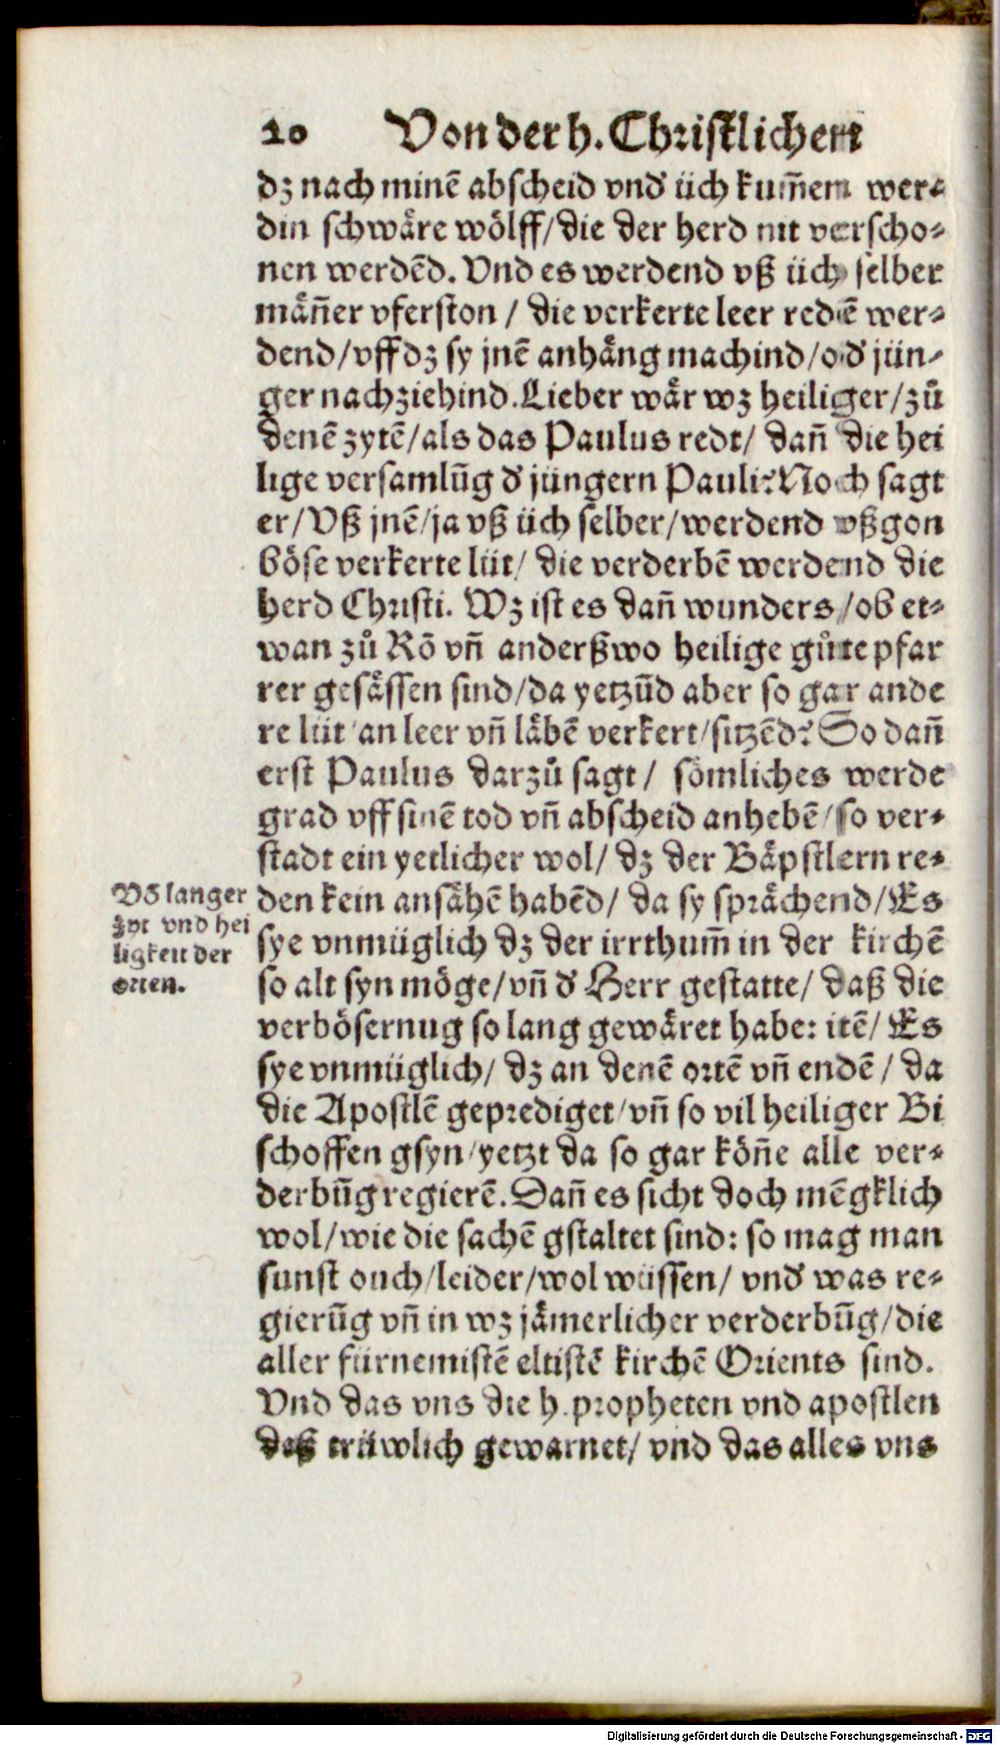 20 Von der h. Christlichen
dz nach minē abscheid vnd̕ üch kum̄em wer-
din schwäre wölff/ die der herd nit verscho-
nen werdēd. Vnd es werdend vß üch selber
män̄er vferston / die verkerte leer redē wer-
dend/ vff dz sy jnē anhäng machind/ od̕ jün-
ger nachziehind. Lieber wär wz heiliger/ zů
denē zytē/ als das Paulus redt/ dan̄ die hei
lige versamlūg d̕ jüngern Pauli? Noch sagt
er/ Vß jnē/ ja vß üch selber/ werdend vßgon
böse verkerte lüt/ die verderbē werdend die
herd Christi. Wz ist es dan̄ wunders/ ob et-
wan zů Rō vn̄ anderßwo heilige gůte pfar
rer gesässen sind/ da yetzūd aber so gar ande
re lüt an leer vn̄ läbē verkert/ sitzēd? So dan̄
erst Paulus darzů sagt/ sömliches werde
grad vff sinē tod vn̄ abscheid anhebē/ so ver-
stadt ein yetlicher wol/ dz der Bäpstlern re-
den kein ansähē habēd/ da sy sprächend/ Es
sye vnmüglich dz der irrthum̄ in der kirchē
so alt syn möge/ vn̄ d̕ Herr gestatte/ daß die
verbösernug so lang gewäret habe: itē/ Es
sye vnmüglich/ dz an denē ortē vn̄ endē / da
die Apostlē geprediget/ vn̄ so vil heiliger Bi
schoffen gsyn/ yetzt da so gar kön̄e alle ver-
derbūg regierē. Dan̄ es sicht doch mēgklich
wol/ wie die sachē gstaltet sind: so mag man
sunst ouch/ leider/ wol wüssen/ vnd̕ was re-
gierūg vn̄ in wz jämerlicher verderbūg/ die
aller fürnemistē eltistē kirchē Orients sind.
Vnd das vns die h. propheten vnd apostlen
deß trüwlich gewarnet/ vnd das alles vns
Vō langer
zyt vnd hei
ligkeit der
orten.
Digitalisierung gefördert durch die Deutsche Forschungsgemeinschaft - DFG